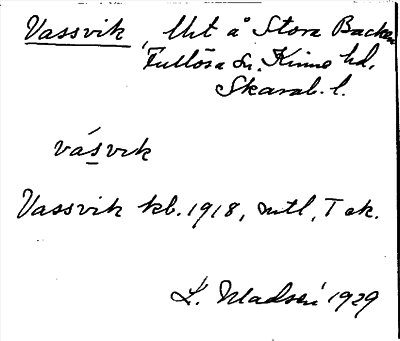 Vassvik, Uht å Stora Backen
Fullösa sn. Kinne hd.
Skarab. l.
vásvik
Vassvik kb. 1918, mtl, T ek.
L. Madsén 1929